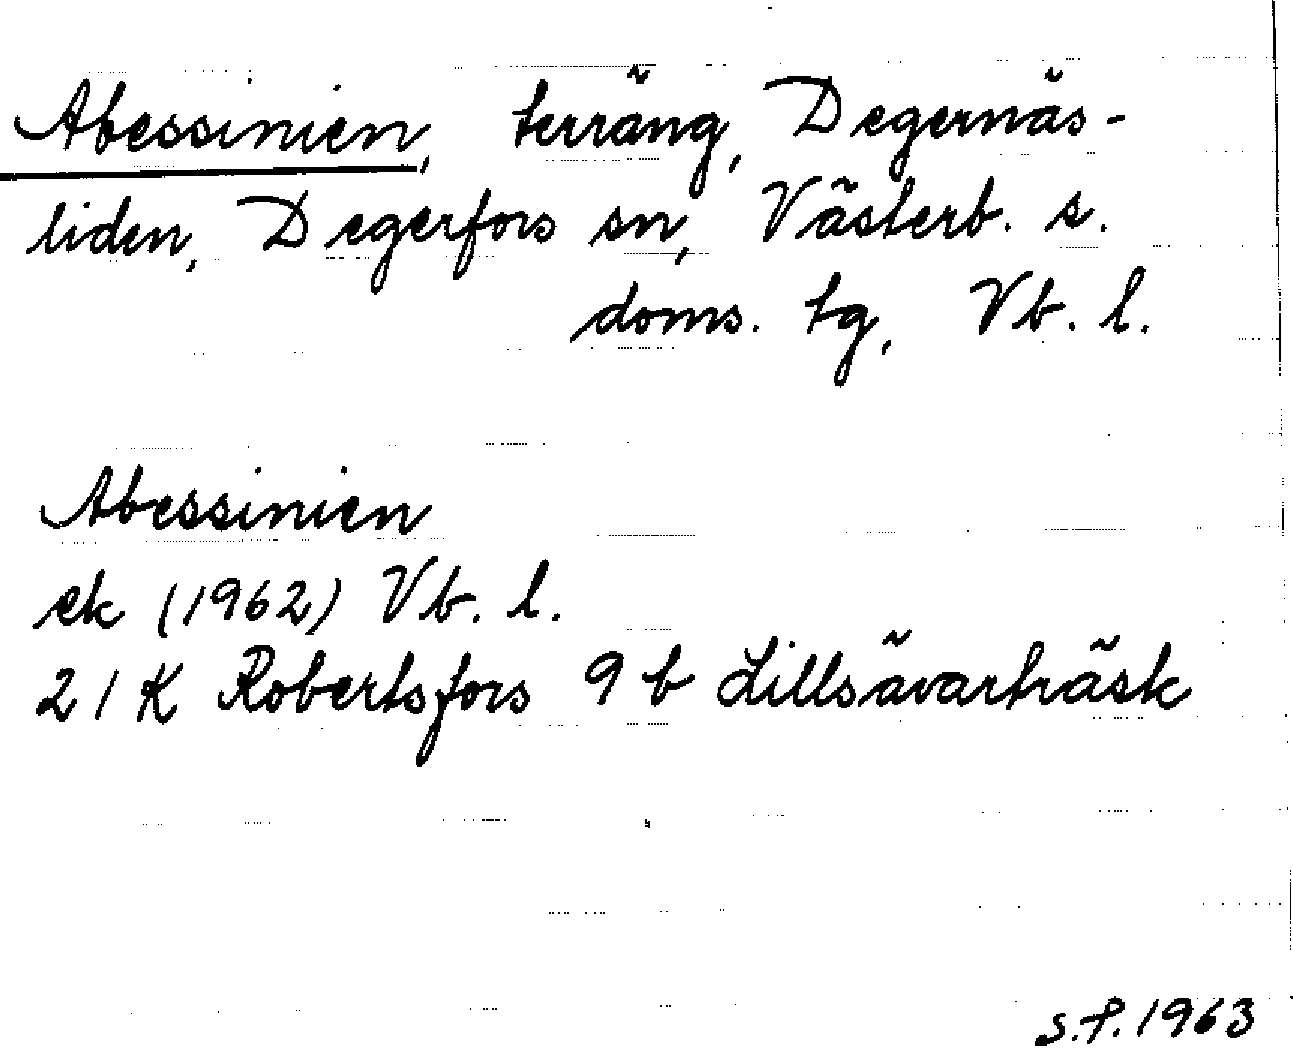 Abessinien, terräng, Degernäs-
liden, Degerfors sn, Västerb. s.
doms. tg, Vb. l.
Abessinien
ek (1962) Vb. l.
21K Robertsfors 9 b Lillsävarträsk
S.P. 1963